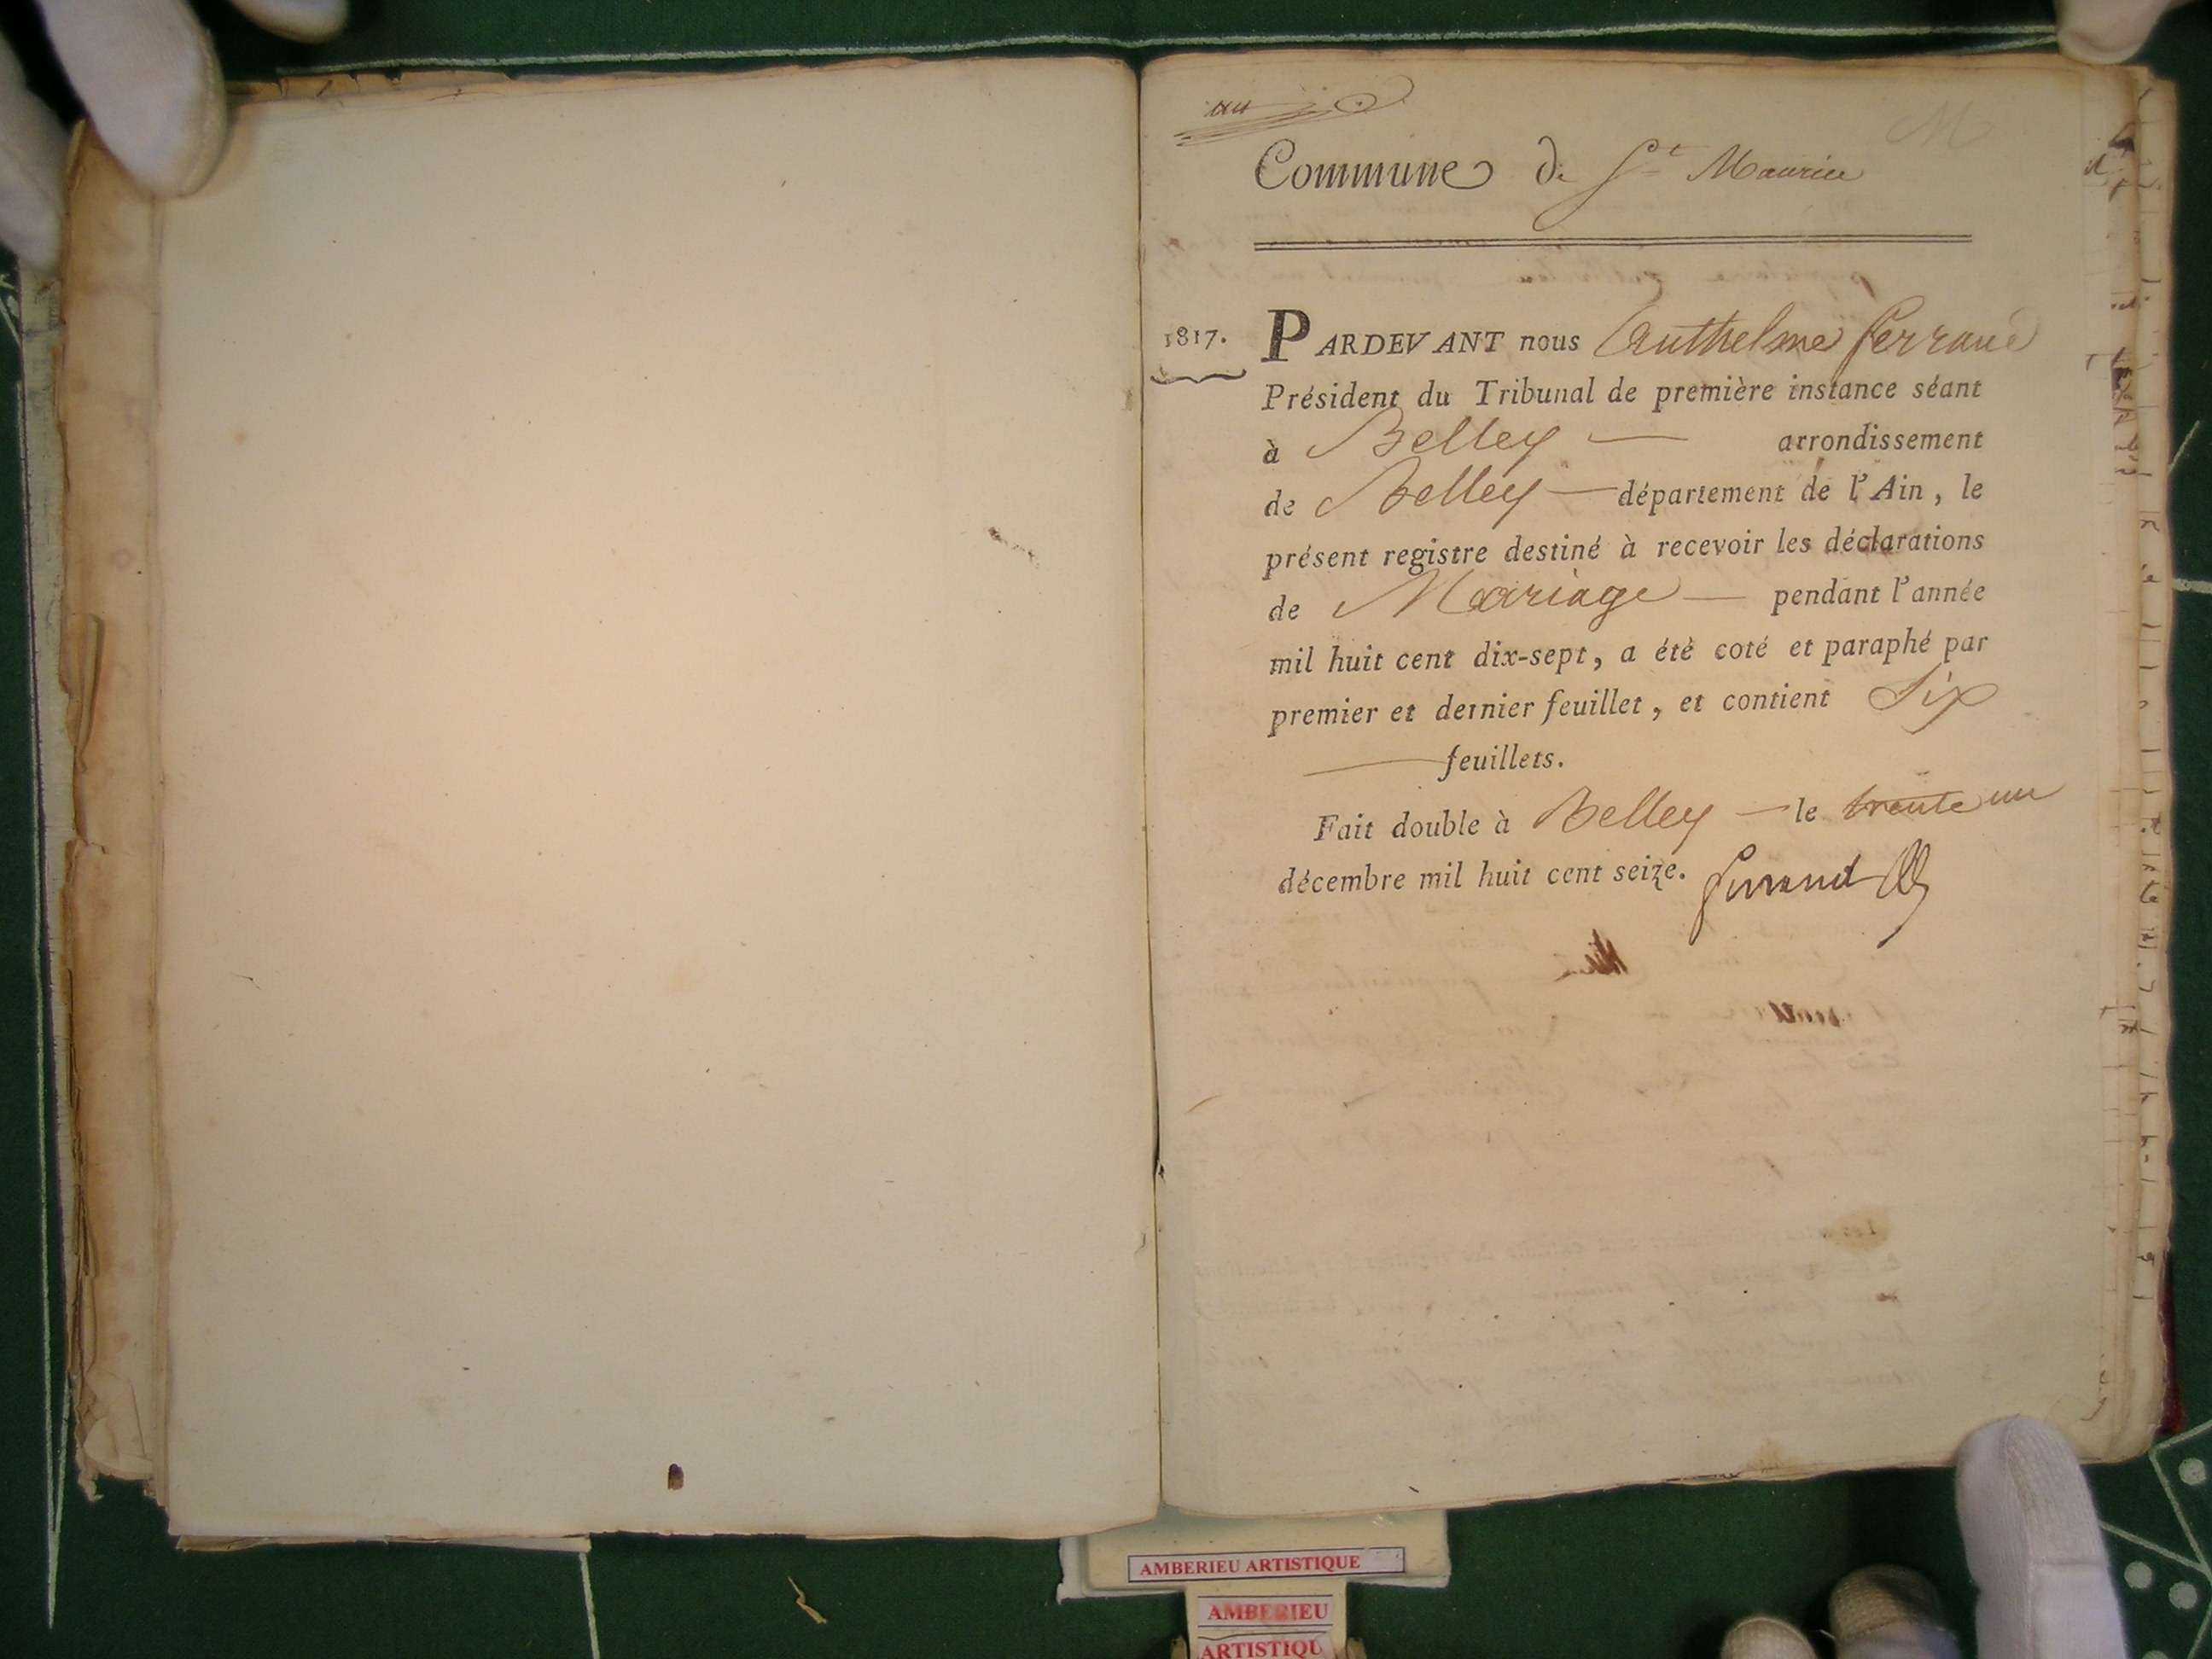 Commune de St Maurice
1817. PARDEVANT nous Anthelme ferrand
Président du Tribunal de première instance séant
à Belley — arrondissement
de Belley — département de l'Ain, le
présent registre destiné à recevoir les déclarations
de Mariage — pendant l'année
mil huit cent dix-sept, a été coté et paraphé par
premier et dernier feuillet, et contient Six
— feuillets.
Fait double à Belley — le trente un
décembre mil huit cent seize. ferrand
AMBERIEU ARTISTIQUE
AMBERIEU
ARTISTIQU